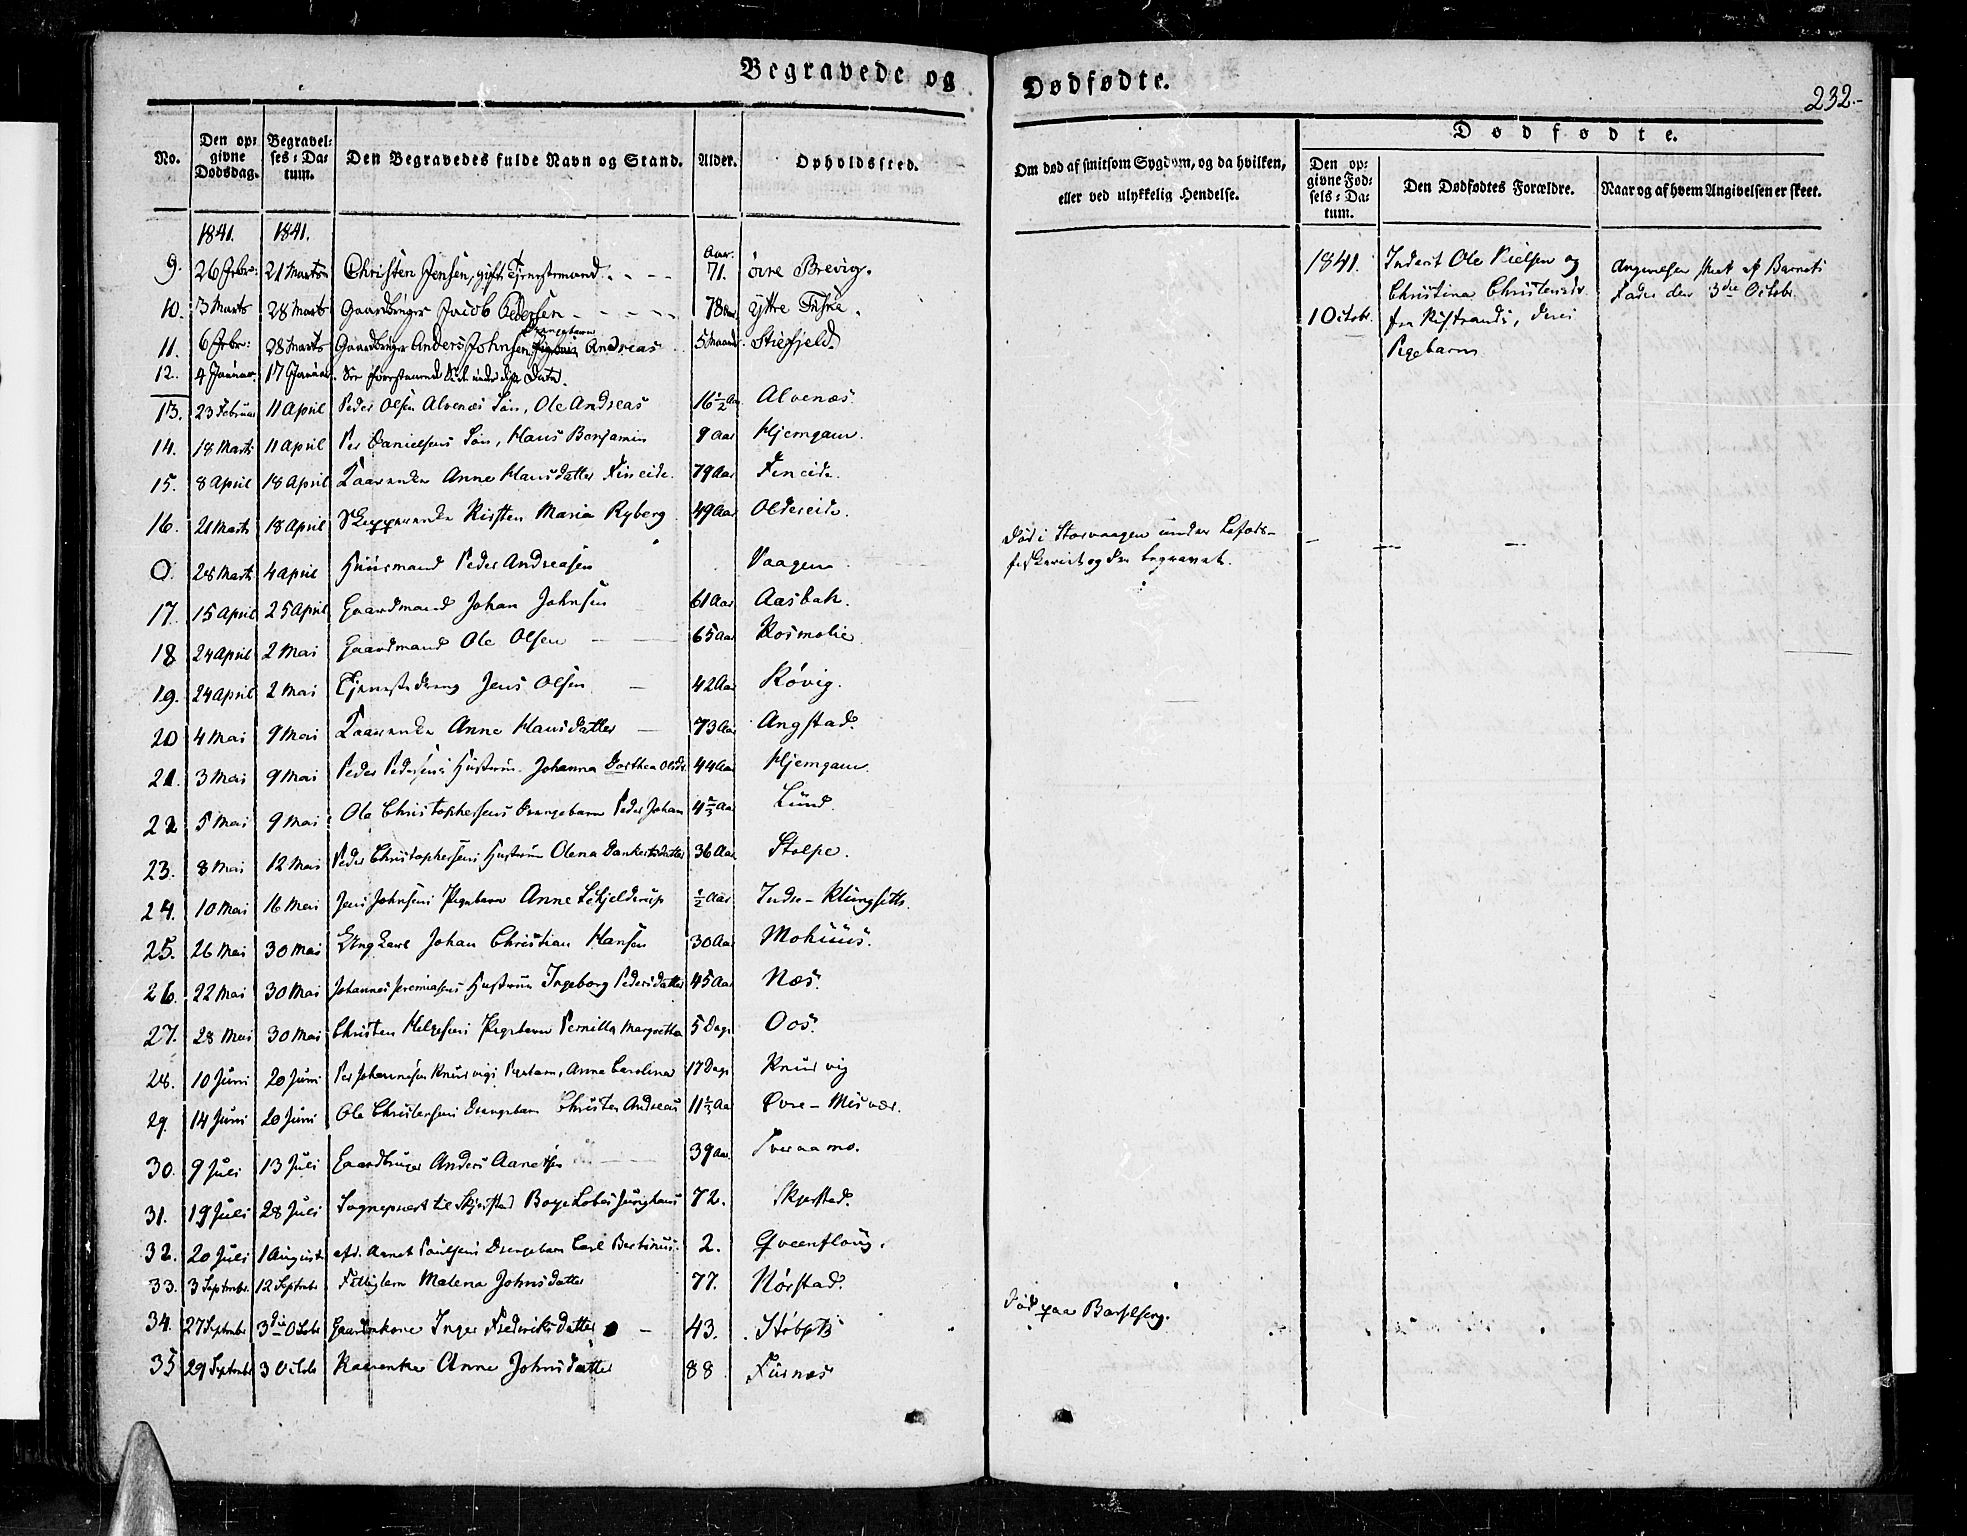 Begravede og
Dødfødte.
232.-
No.
Den op-
givne
Dødsdag.
Begravel-
ses-Da-
tum.
Den Begravedes fulde Navn og Stand.
Alder.
Opholdssted.
Om død af smitsom Sygdom, og da hvilken,
eller ved ulykkelig Hendelse.
Dødfødte.
Den op-
givne Fød-
sels-Da-
tum.
Den Dødfødtes Forældre.
Naar og af hvem Angivelsen er skeet.
1841. 1841.
9. 26 Febr: 21 Marts Christen Jensen, gift Tjenestemand. Aar. 71. øvre Brevig.
10. 3 Marts 28 Marts Gaardbruger Jacob Pedersen 78 ytre
11. 6 Febr: 28 Marts Gaardbruger Anders Johnsens Drengebarn Andreas 5 Maan Stiefjeld.
12. 4 Januar 17 Januar. See Date.
13. 23 Februar 11 April Peder Olsen Alvenæs Søn, Ole Andreas 16½ Aar Alvenæs.
14. 18 Marts 11 April Per Danielsens Søn, Hans Benjamin 9 Aar Hjemgam.
15. 8 April 18 April Kaarenke Anne Hansdatter Fineide. 79 Aar Fineide.
16. 21 Marts 18 April Skipperenke Kirsten Maria Ryberg 49 Aar Oldereide.
0. 28 Marts 4 April Huusmand Peder Andreasen Vaagen
Død i Storvaagen under Lofods-
fiskeriet og der begravet.
17. 15 April 25 April Gaardmand Johan Johnsen 61 Aar Aasbak.
18 24 April 2 Mai Gaardmand Ole Olsen 65 Aar Kosmolie
19. 24 April 2 Mai Tjenestedreng Jens Olsen 42 Aar Røvig.
20 4 Mai 9 Mai Kaarenke Anne Hansdatter 73 Aar Angstad.
21. 3 Mai 9 Mai Peder Pedersens Hustrue Johanna Dorthea Olsdr 44 Aar Hjemgam.
22 5 Mai 9 Mai Ole Christophersens Drengebarn Peder Johan 4⅔ Aar Lund.
23. 8 Mai 12 Mai Peder Christophersens Hustrue Olena Dankertsdatter 36 Aar Stolpe.
24. 10 Mai 16 Mai Jens Johnsens Pigebarn Anne Schjelderup ½ Aar Indre-Klungset
25. 26 Mai 30 Mai Ungkarl Johan Christian Hansen 30 Aar Mohuus.
26. 22 Mai 30 Mai Johannes Jeremiasens Hustrue Ingeborg Pedersdatter 45 Aar Næs.
27. 28 Mai 30 Mai Christen Helgesens Pigebarn Pernilla Margretha 5 Dage Oos.
28. 10 Juni 20 Juni Per Johannesen Knurvigs Pigebarn, Anne Carolina 17 Dage Knurvig
29. 14 Juni 20 Juni Ole Christensens Drengebarn Christen Andreas 11⅓ Aar Øvre-Misvær.
30. 9 Juli 13 Juli Gaardbruger Anders Aanetsen 39 Aar. Tveraamo.
31. 19 Juli 28 Juli Sognepræst til Skjerstad Boye Junghans 72. Skjerstad.
32. 20 Juli 1 August afd. Aanet Paulsens Drengebarn Carl Bertinus. 2. Qveenflaug.
33. 3 Septembr. 12 Septembr Fattiglem Malena Johnsdatter 77. Nørstad.
34. 27 Septembr 3die Octobr Gaardmkone Inger Frederiksdatter 43.
Død paa Barselseng.
35 29 Septembr 3 Octobr Kaarenke Anne Johnsdatter 88 Furnæs
1841. Inderst Ole Nielsen og
Christina Christensdr.
1 Octobr. fra Ristrands, deres
Pigebarn
Angivelsen skeet af Barnets
Fader den 3die Octobr.